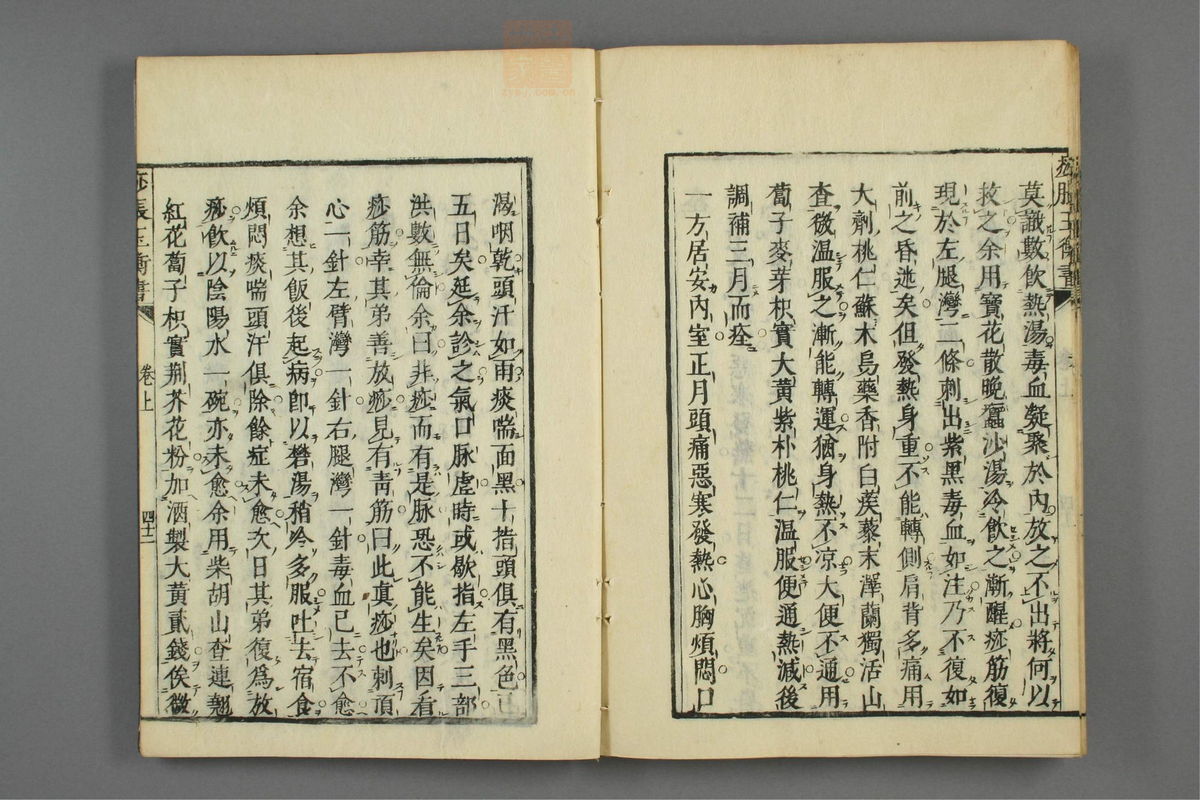 痧脹玉衡書
莫識數飲熱湯毒血凝聚於內放之不出將何以
救之余用寶花散晚蠶沙湯冷飲之漸醒痧筋復
現於左腿灣二條刺出紫黑毒血如注乃不復如
前之昏迷矣但發熱身重不能轉側肩背多痛用
大劑桃仁蘇木烏藥香附白蒺藜末澤蘭獨活山
查微溫服之漸能轉運猶身熱不凉大便不通用
蔔子麥芽枳實大黃紫朴桃仁溫服便通熱減後
調補三月而痊
一方居安內室正月頭痛惡寒發熱心胸煩悶口
渴咽乾頭汗如雨痰喘面黑十指頭俱有黑色已
五日矣延余診之氣口脉虛時或歇指左手三部
洪數無倫余曰非痧而有是脉恐不能生矣因看
痧筋幸其弟善放痧見有青筋曰此真痧也刺頂
心一針左臂灣一針右腿灣一針毒血已去不愈
余想其飯後起病卽以礬湯稍冷多服吐去宿食
煩悶痰喘頭汗俱除餘症未愈次日其弟復爲放
痧飮以陰陽水一碗亦未愈余用柴胡山查連翹
紅花蔔子枳實荆芥花粉加酒製大黃貳錢俟微
痧脹玉衡書
卷上
四十二